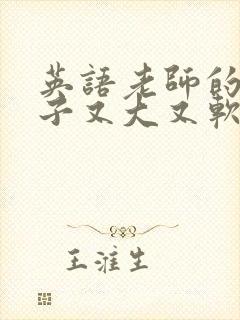 英語老師的
子又大又軟
王淮生